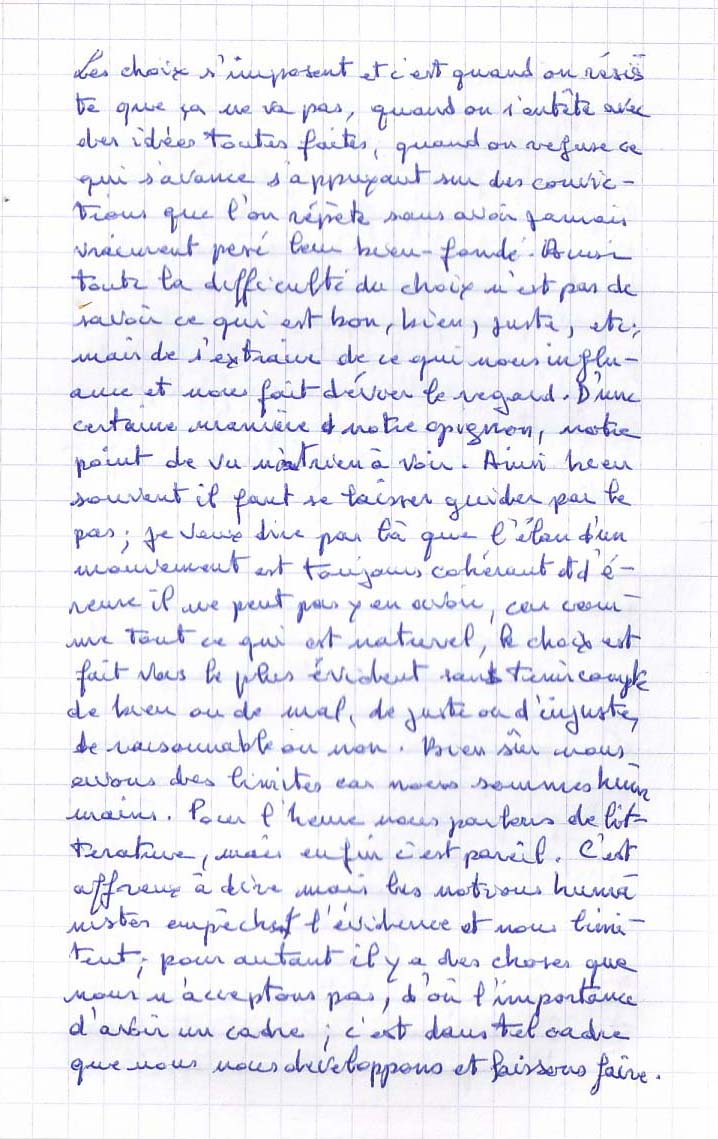 Les choix s'imposent et c'est quand on résis
te que ça ne va pas, quand on s'entête avec
des idées toutes faites, quand on refuse ce
qui s'avance s'appuyant sur des convic-
tions que l'on répète sans avoir jamais
vraiment pesé leur bien-fondé. Aussi
toute la difficulté du choix n'est pas de
savoir ce qui est bon, bien, juste, etc;
mais de s'extraire de ce qui nous influ-
ance et nous fait dévier le regard. D'une
certaine manière notre opignon, notre
point de vu n'a rien à voir. Ainsi bien
souvent il faut se laisser guider par le
pas; je veux dire par là que l'élan d'un
mouvement est toujours cohérant et d'é-
reure il ne peut pas y en avoir, car com-
me tout ce qui est naturel, le choix est
fait vers le plus évident sans tenir compte
de bien ou de mal, de juste ou d'injuste,
de raisonnable ou non. Bien sûr nous
avons des limites car nous sommes hu
mains. Pour l'heure nous parlons de lit-
térature, mais enfin c'est pareil. C'est
affreux à dire mais les notions huma
nistes empêchent l'évidence et nous limi-
tent; pour autant il y a des choses que
nous n'acceptons pas, d'où l'importance
d'avoir un cadre; c'est dans tel cadre
que nous nous développons et laissons faire.